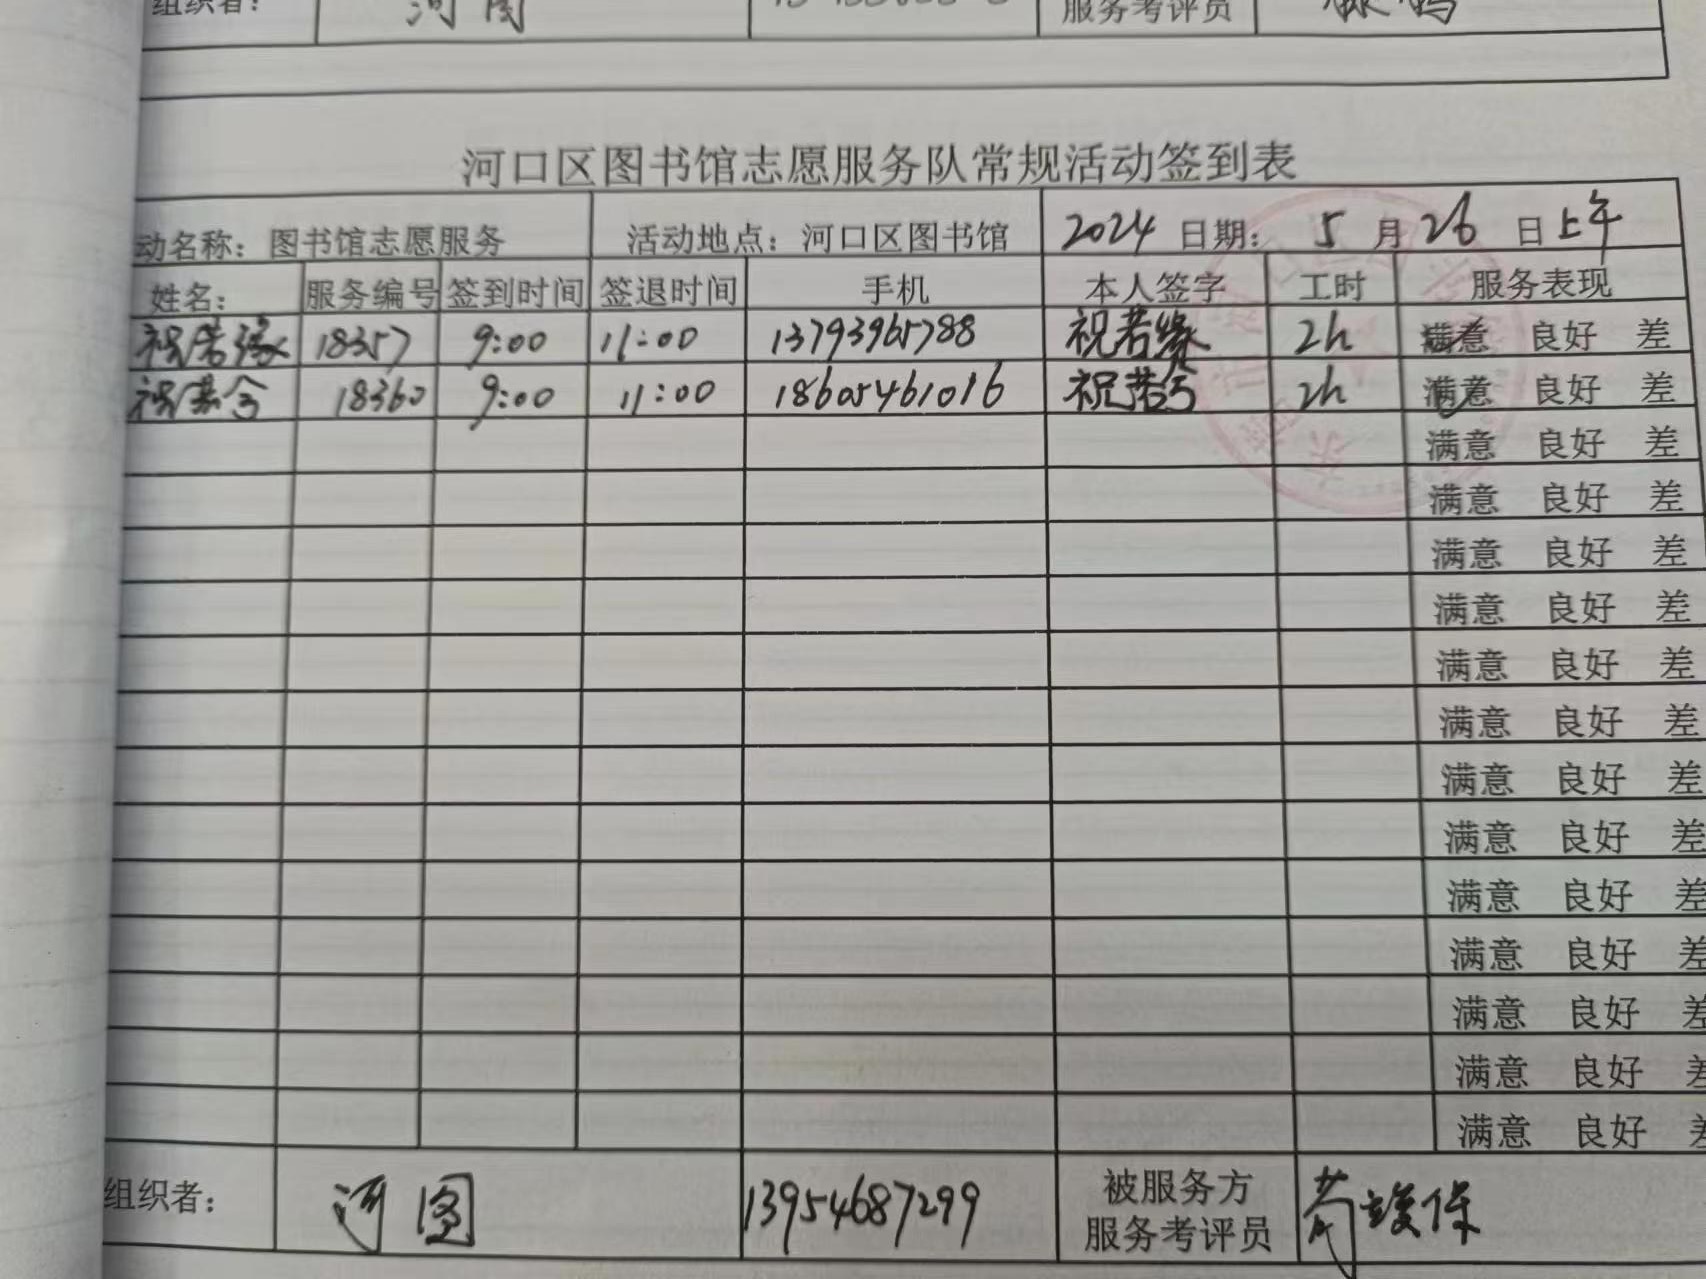 组织者: 河图 服务考评员
河口区图书馆志愿服务队常规活动签到表
动名称: 图书馆志愿服务 活动地点: 河口区图书馆 2024 日期: 5 月 26 日 上午
姓名: 服务编号 签到时间 签退时间 手机 本人签字 工时 服务表现
祝若缘 18357 9:00 11:00 13793965788 祝若缘 2h 满意 良好 差
祝若兮 18360 9:00 11:00 18605461016 祝若兮 2h 满意 良好 差
满意 良好 差
满意 良好 差
满意 良好 差
满意 良好 差
满意 良好 差
满意 良好 差
满意 良好 差
满意 良好 差
满意 良好 差
满意 良好 差
满意 良好 差
满意 良好 差
满意 良好 差
组织者: 河图 13954687299 被服务方
服务考评员